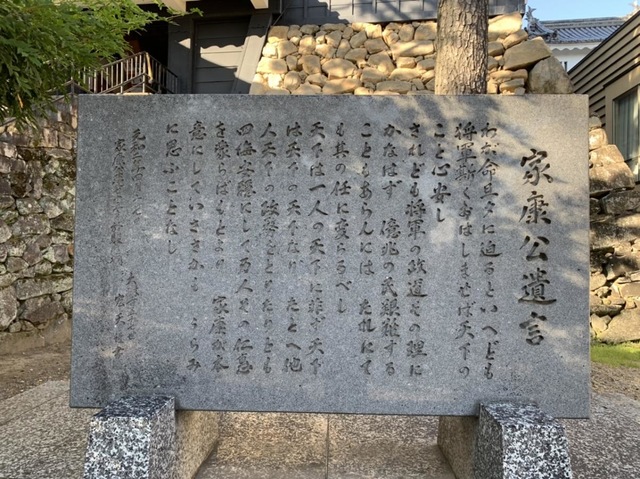 家康公遺言
わが命旦夕に迫るといへども
将軍斯くおはしませば天下の
こと心安し
されども将軍の政道その理に
かなはず 億兆の民艱難する
こともあらんには たれにて
も其の任に変らるべし
天下は一人の天下に非ず天下
は天下の天下なり たとへ他
人天下の政務をとりたりとも
四海安穏にして万人その仁恵
を蒙らばもとより 家康が本
意にしていささかも うらみ
に思ふことなし